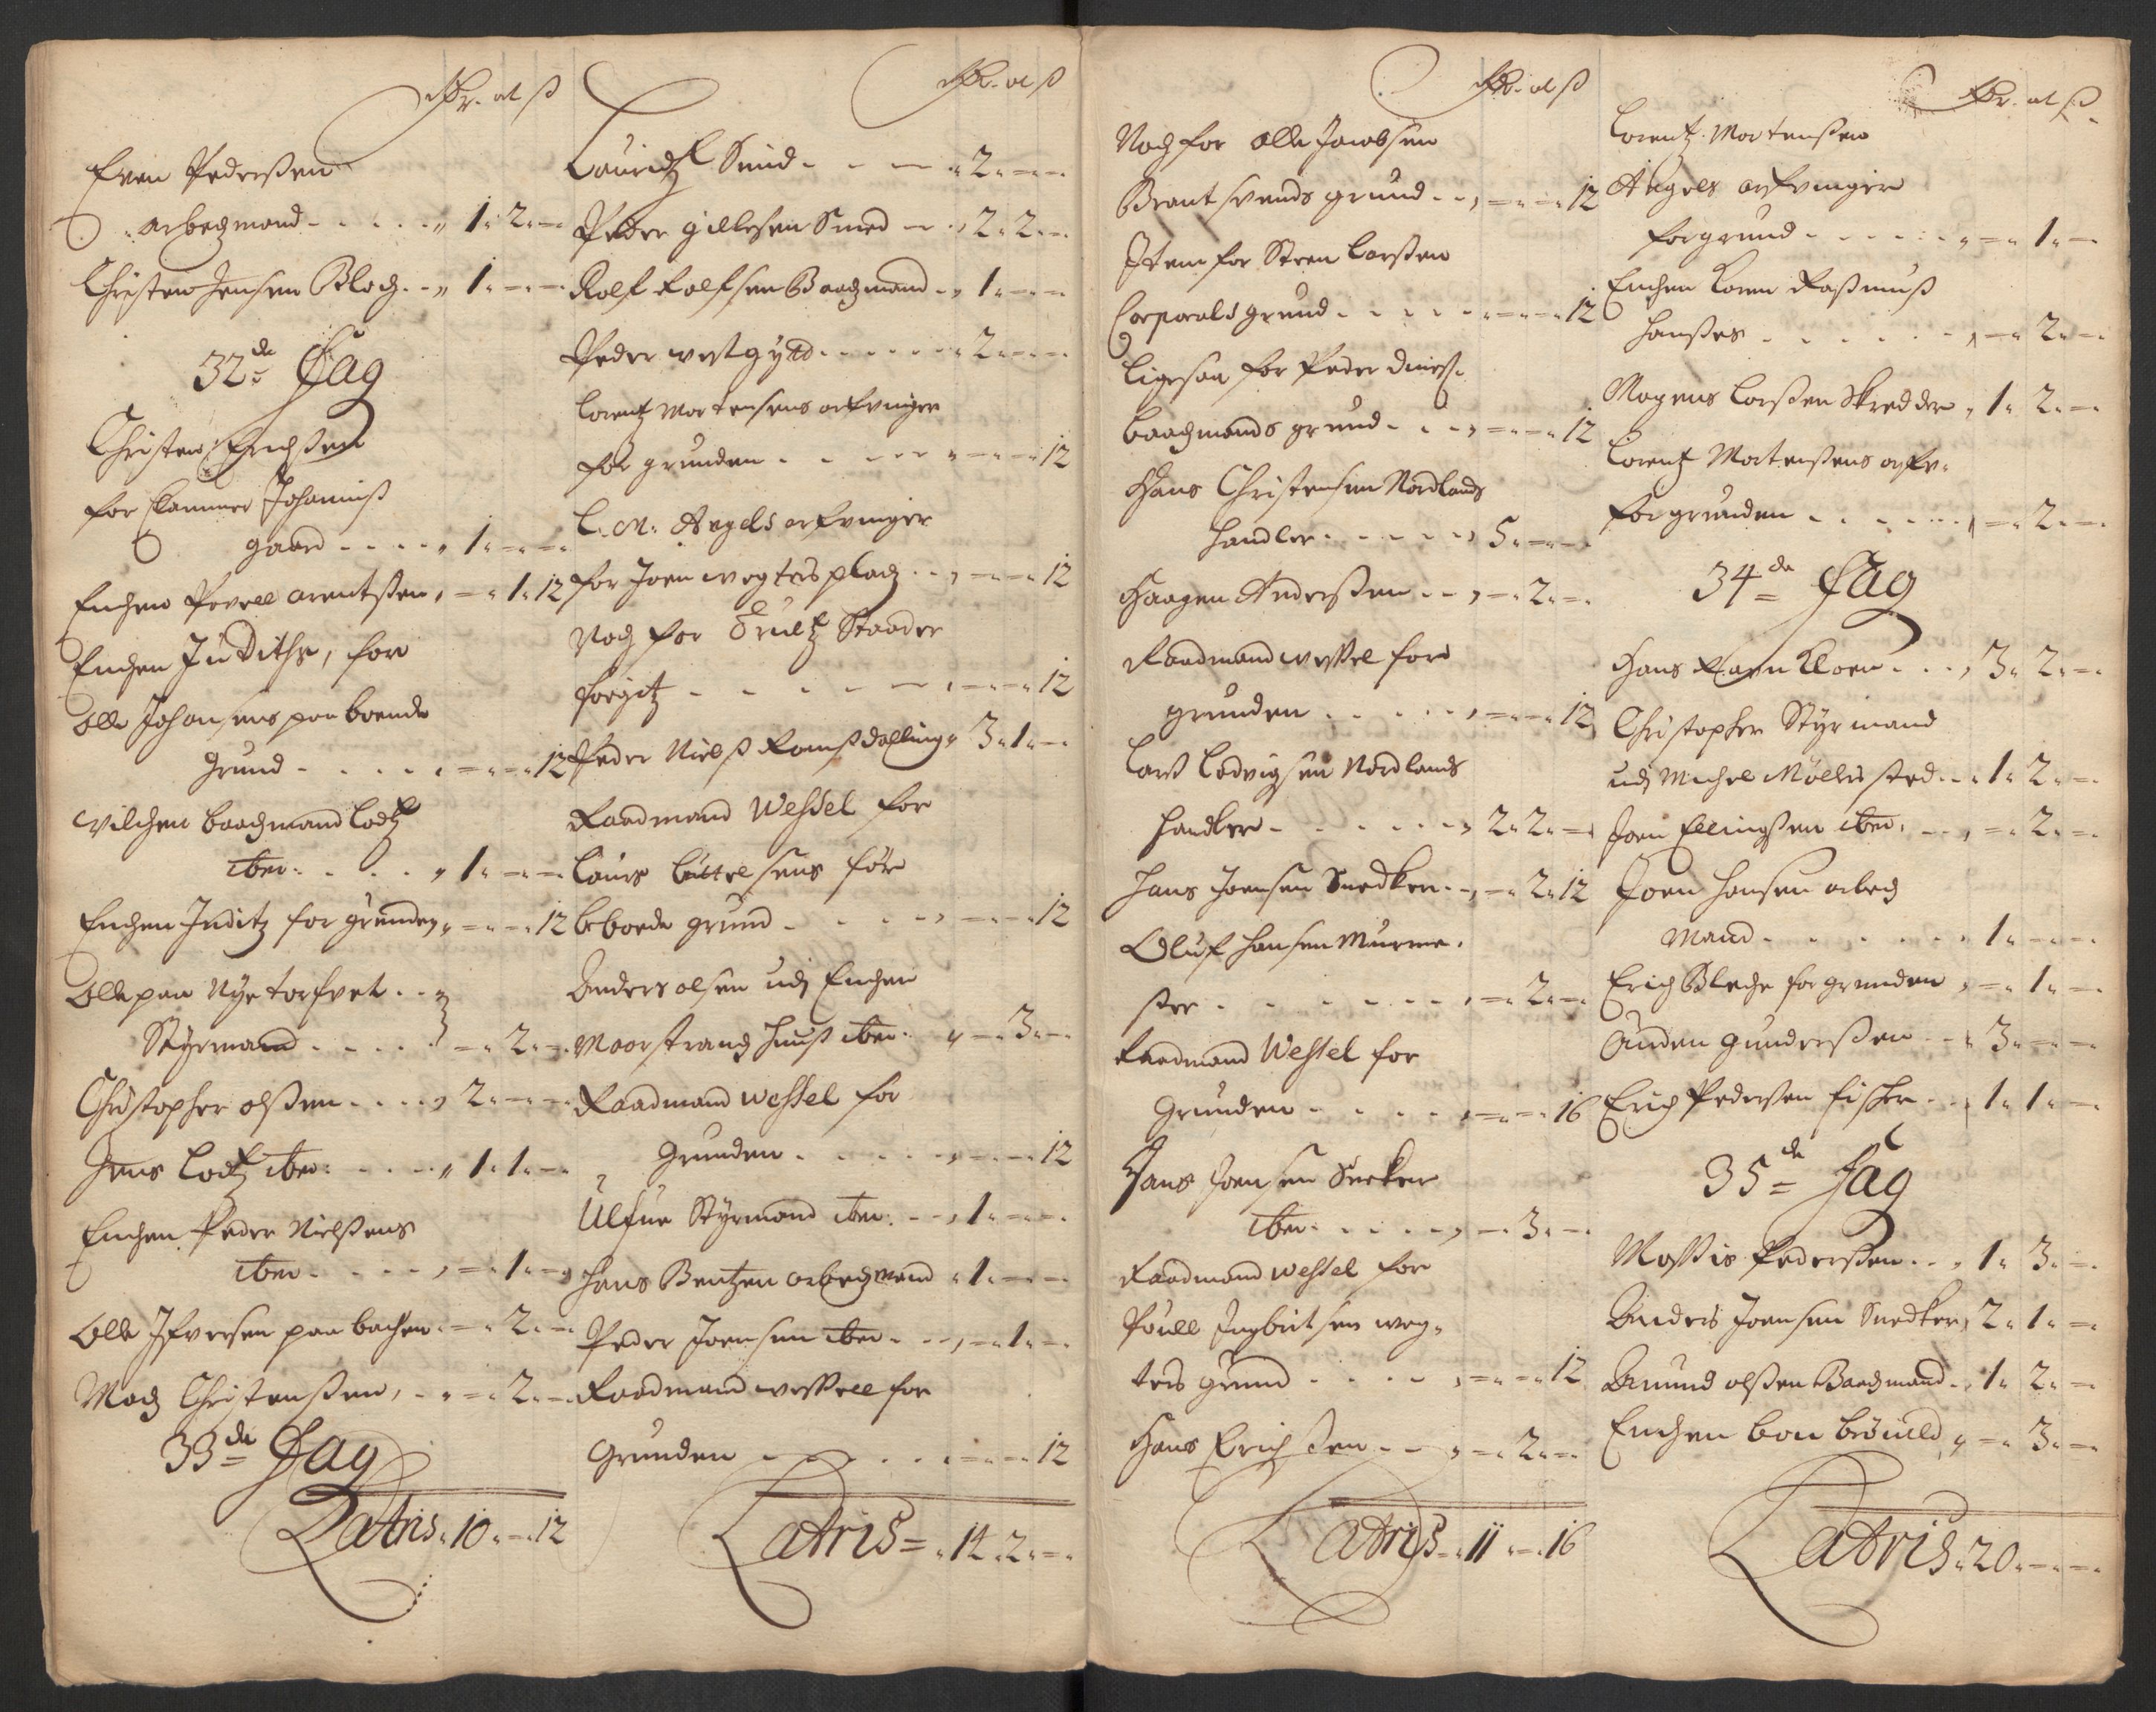 Rdr. ort ß
Even Pederßen
arbegmand - - - - „ 1 „ 2 „ -
Christen Jensen Bloch - - „ 1 „ - „ -
32de Lag
Christen Erichßen
for Clammer Johanniß
gaard - - - - „ 1 „ - „ -
Enchen Povell arentßen „ - „ 1 „ 12
Enchen Judithe, for
Olle Johansens paaboende
grund - - - - „ - „ - „ 12
Vilchen baadzmand Lodtz
iben - - - - „ 1 „ - „ -
Enchen Juditz for grunden „ - „ - „ 12
Olle paa Nye torfvet - -
Styrmand - - - - „ - „ 2 „ -
Christopher olßen - - - - „ 2 „ - „ -
Jens Lodtz iben - - - - „ 1 „ 1 „ -
Enchen Peder Nielßens
iben - - - - „ - „ 1 „ -
Olle Ifversen paa bachen „ - „ 2 „ -
Madz Christenßen - „ - „ 2 „ -
33de Lag
Latris „ 10 „ - „ 12
Rdr. ort ß
Lauridtz Smid - - - „ 2 „ - „ -
Peder gillesen Smed - - „ 2 „ 2 „ -
Rolf Rolfsen Baadzmand - „ 1 „ - „ -
Peder westgytt - - - - „ 2 „ - „ -
Lorentz Mortensens arfvinger
for grunden - - - - „ - „ - „ 12
L. M. Angels arfvinger
for Joen wegters pladz - - „ - „ - „ 12
Noch for Truelß Staader
forgitz - - - - „ - „ - „ 12
Peder Nielß Romßdalling „ 3 „ 1 „ -
Raadmand Wessel for
Laurs büttelsens før
beboede grund - - - - „ - „ - „ 12
Anders olsen udj Enchen
Moorstrands huuß iben „ - „ 3 „ -
Raadmand wessel for
Grunden - - - - „ - „ - „ 12
Ulfue Styrmand iben - - „ 1 „ - „ -
Hans Bentzen arbegmand „ 1 „ - „ -
Peder Joensen iben - - „ - „ 1 „ -
Raadmand wessell for
Grunden - - - - „ - „ - „ 12
Latris = „ 14 „ 2 „ -
Rdr. ort ß
Noch for Olle Jacobsen
Brant svends grund - - „ - „ - „ 12
Item for Steen Larßen
Corporals grund - - - - „ - „ - „ 12
Ligesaa for Peder Dinesß.
baadzmands grund - - - „ - „ - „ 12
Hans Christensen Nordlands
handler - - - - „ 5 „ - „ -
Haagen Anderßen - - „ - „ 2 „ -
Raadmand wessel for
grunden - - - - „ - „ - „ 12
Lars Lodvigsen Nordlands
handler - - - - „ 2 „ 2 „ -
Hans Joensen Snedker - „ - „ 2 „ 12
Oluf hansen Murme-
ster - - - - „ - „ 2 „ -
Raadmand Wessel for
Grunden - - - - „ - „ - „ 16
Hans Joensen Snedker
iben - - - - „ - „ 3 „ -
Raadmand wessel for
Povell Ingbritsen weg-
ters grund - - - - „ - „ - „ 12
Hans Erichßen - - „ - „ 2 „ -
Latris „ 11 „ - „ 16
Rdr. ort ß
Lorentz Mortenßen
Angels arfvinger
for grund - - - - „ - „ 1 „ -
Enchen Karen Raßmuß
Hanßes - - - - „ - „ 2 „ -
Mogens Larßen Skredder „ 1 „ 2 „ -
Lorentz Mortenßens arfv.
for grunden - - - - „ - „ 2 „ -
34de Lag
Hans Ravn Kloen - - - „ 3 „ 2 „ -
Christopher Styrmand
udj Michel Møllers sted - „ 1 „ 2 „ -
Joen Ellingßen iben - - „ - „ 2 „ -
Joen Hansen arbeds
mand - - - - „ 1 „ - „ -
Erich Bleche for grunden „ - „ 1 „ -
Auden gunderßen - - „ 3 „ - „ -
Erich Pederßen fischer - - „ 1 „ 1 „ -
35de Lag
Mattis Pederßen - - „ 1 „ 3 „ -
Anders Joensen Snedker „ 2 „ 1 „ -
Amund olßen Baadzmand - „ 1 „ 2 „ -
Enchen von brüeld „ - „ 3 „ -
Latris „ 20 „ - „ -